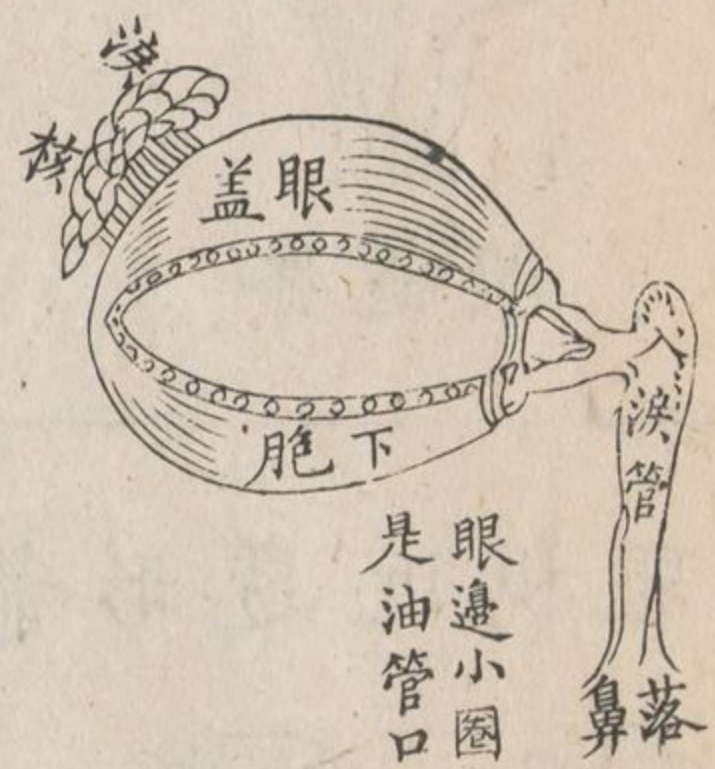 淚核
眼盖
下胞
淚管
落鼻
眼邊小圈
是油管口